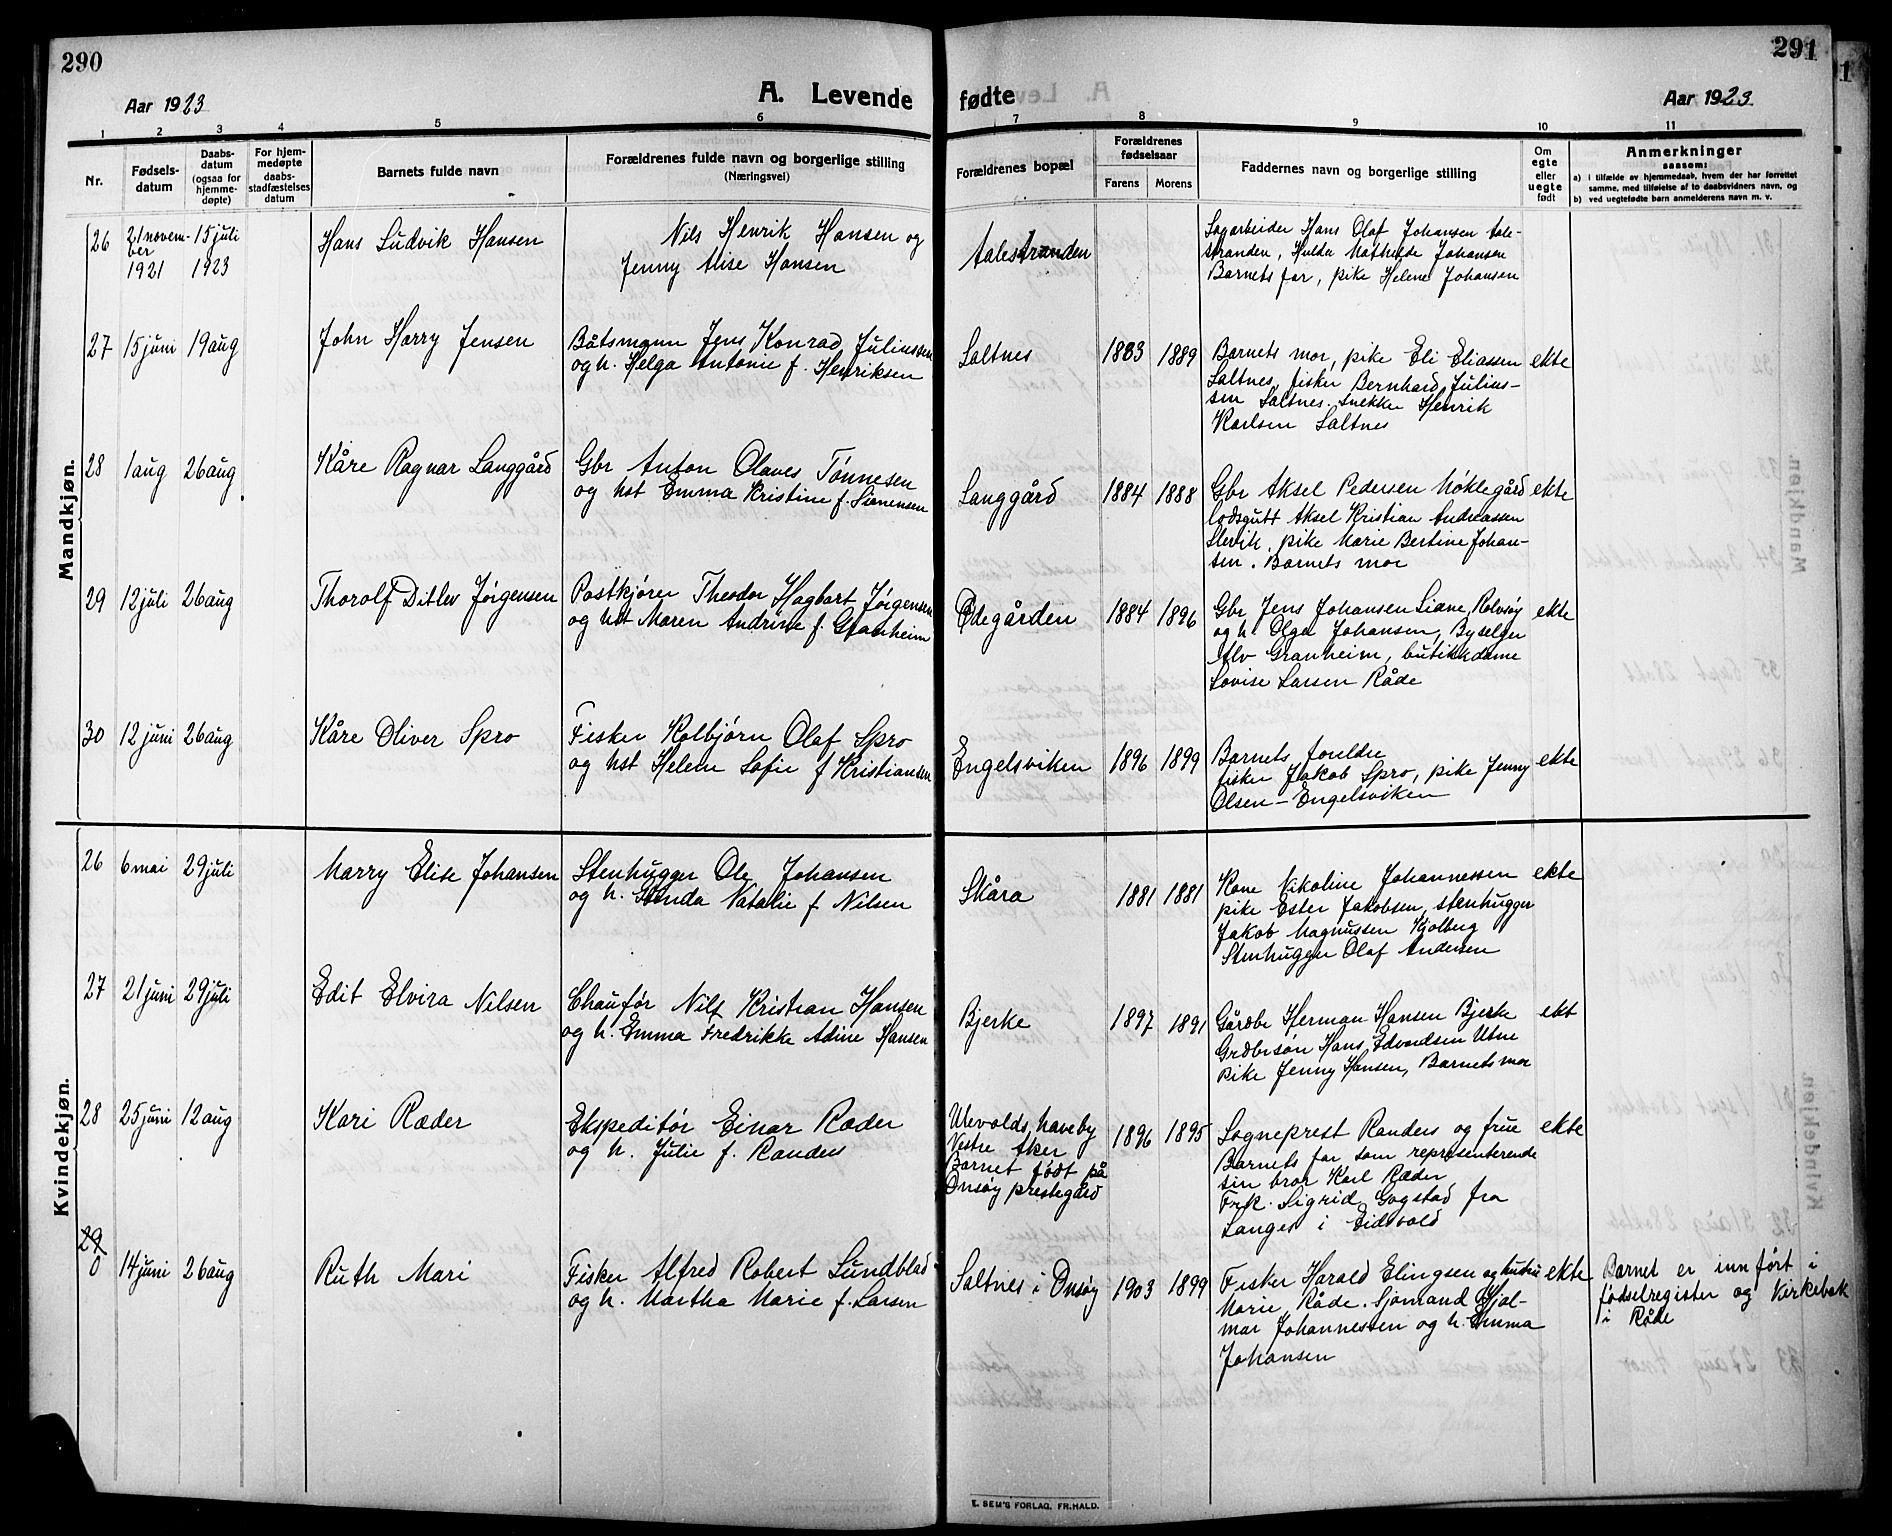 290
Aar 1923
A. Levende
1 2 3 4 5 6
Nr.
Fødsels-
datum
Daabs-
datum
(ogsaa for
hjemme-
døpte)
For hjem-
medøpte
daabs-
stadfæstelses
datum
Barnets fulde navn
Forældrenes fulde navn og borgerlige stilling
(Næringsvei)
Mandkjøn.
26
21 novem-
ber
1921
15 juli
1923
Hans Ludvik Hansen
Nils Henrik Hansen og
Jenny Alise Hansen
27 15 juni 19 aug
John Harry Jensen
Båtsmann Jens Konrad Juliussen
og h. Helga Antonie f. Henriksen
28 1 aug 26 aug
Kåre Ragnar Langgård
Gbr Anton Olaves Tønnesen
og hst Emma Kristine f. Simensen
29 12 juli 26 aug
Thorolf Ditlev Jørgensen
Postkjører Theodor Hagbart Jørgensen
og hst Maren Andrine f. Granheim
30 12 juni 26 aug
Kåre Oliver Spro
Fisker Kolbjørn Olaf Spro
og hst Helene Sofie f Kristiansen
Kvindekjøn.
26 6 mai 29 juli
Marry Elise Johansen
Stenhugger Ole Johansen
og h. Natalie f Nilsen
27 21 juni 29 juli
Edit Elvira Nilsen
Chaufør Nils Kristian Hansen
og h. Emma Fredrikke Adine Hansen
28 25 juni 12 aug
Kari Ræder
Ekspeditør Einar Ræder
og h. Julie f. Randers
29
0 14 juni 26 aug
Ruth Mari
Fisker Alfred Robert Lundblad
og h. Martha Marie f. Larsen
291
Aar 1923
fødte
7 8 9 10 11
Forældrenes bopæl
Forældrenes
fødselsaar
Farens Morens
Faddernes navn og borgerlige stilling
Om
egte
eller
uegte
født
Anmerkninger
saasom:
a) i tilfælde av hjemmedaab, hvem der har forrettet
samme, med tilføielse af to daabsvidners navn, og
b) ved uegtefødte barn anmelderens navn m. v.
Aalestranden
Sagarbeider Hans Olaf Johansen Aale-
stranden, Hulda Mathilde Johansen
Barnets far, pike Helene Johansen
Saltnes 1883 1889
Barnets mor, pike Eli Eliassen
Saltnes, fisker Bernhard Julius-
sen Saltnes. Snekker Henrik
Karlsen Saltnes
ekte
Langgård 1884 1888
Gbr Aksel Pedersen Møklegård
lodsgutt Aksel Kristian Andreassen
Slevik, pike Marie Bertine Johan-
sen. Barnets mor
ekte
Ødegården 1884 1896
Gbr Jens Johansen Liane, Rolvsøy
og h. Olga Johansen, Byselger
Alv Granheim, butikkdame
Lovise Larsen Råde
ekte
Engelsviken 1896 1899
Barnets foreldre
fisker Jakob Spro, pike Jenny
Olsen – Engelsviken
ekte
Skåra 1881 1881
Kone Nikoline Johannessen
pike Ester Jakobsen, stenhugger
Jakob Magnussen Kjølberg
Stenhugger Olaf Andersen
ekte
Bjerke 1897 1891
Gårdbr Herman Hansen Bjerke
Grdbrsøn Hans Edvardsen Utne
Pike Jenny Hansen, Barnets mor
ekt
Ulevolds haveby
Vestre Aker
Barnet født på
Onsøy prestegård
1896 1895
Sogneprest Randers og frue
Barnets far som representerende
sin bror Karl Ræder
Frk. Sigrid Gogstad fra
Langes i Eidsvold
ekte
Saltnes i Onsøy 1903 1899
Fisker Harald Elingsen og hustru
Marie, Råde. Sjømand Hjal-
mar Johannessen og h. Emma
Johansen
ekte
Barnet er innført i
fødselregister og kirkebok
i Råde
E. SEM'S FORLAG, FR.HALD.